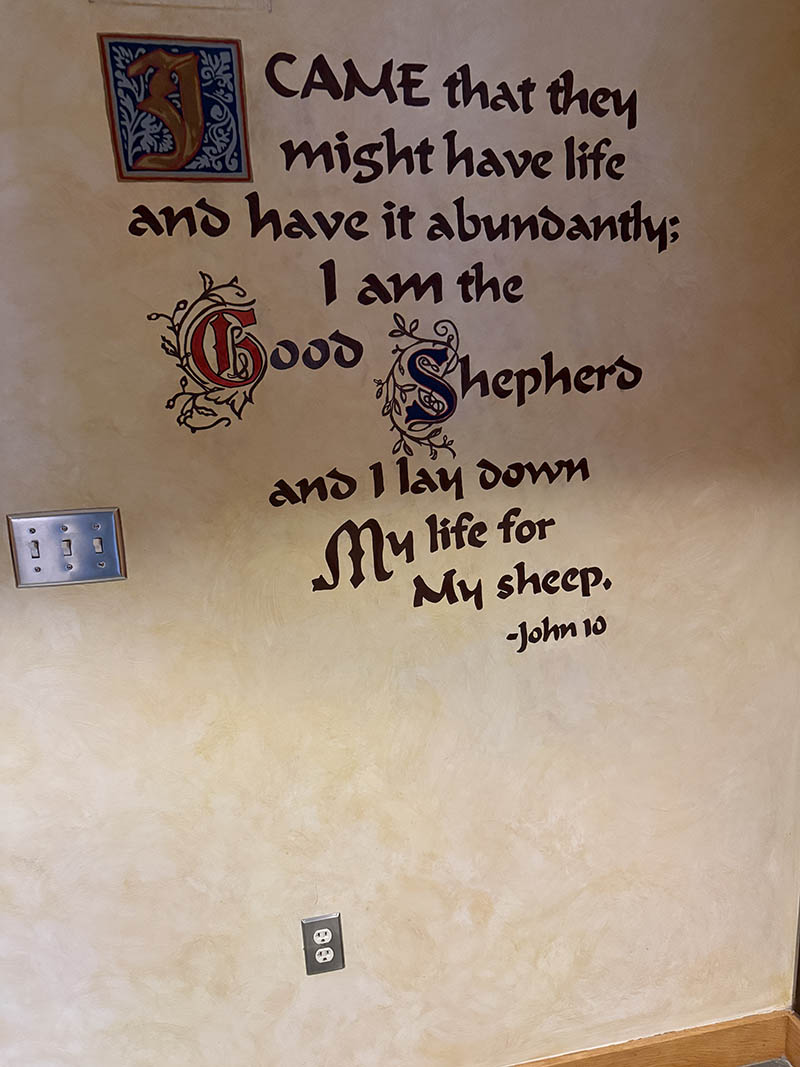 I CAME that they
might have life
and have it abundantly;
I am the
Good Shepherd
and I lay down
My life for
My sheep.
-John 10